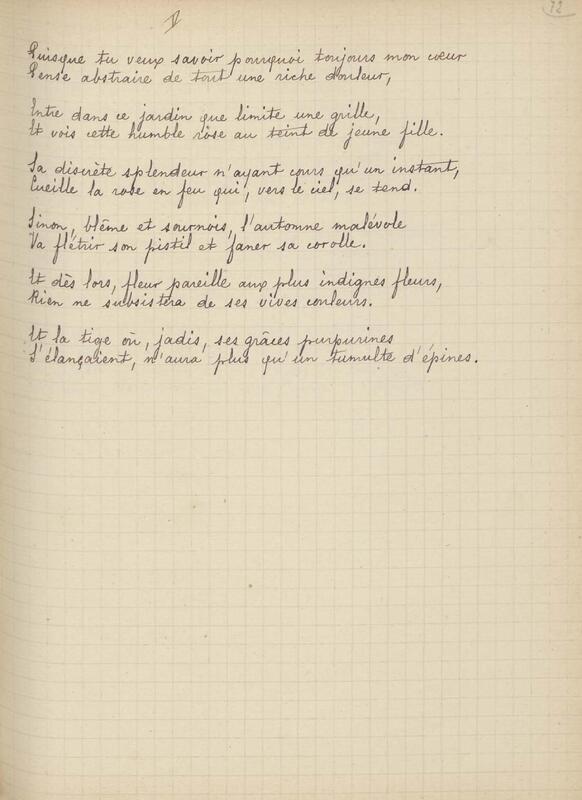 V
12
Puisque tu veux savoir pourquoi toujours mon cœur
Pense abstraire de tout une riche douleur,
Entre dans ce jardin que limite une grille,
Et vois cette humble rose au teint de jeune fille.
Sa discrète splendeur n'ayant cours qu'un instant,
Cueille la rose en feu qui, vers le ciel, se tend.
Sinon, blême et sournois, l'automne malévole
Va flétrir son pistil et faner sa corolle.
Et dès lors, fleur pareille aux plus indignes fleurs,
Rien ne subsistera de ses vives couleurs.
Et la tige où, jadis, ses grâces purpurines
S'élançaient, n'aura plus qu'un tumulte d'épines.